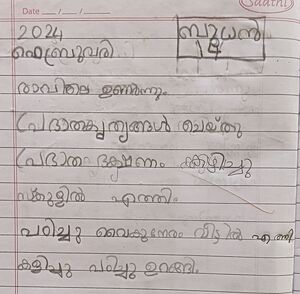 Saathi
Date ___/___/___
2024 ബുധൻ
ഫെബ്രുവരി 14
രാവിലെ ഉണർന്നു.
പ്രഭാതകൃത്യങ്ങൾ ചെയ്തു
പ്രഭാത ഭക്ഷണം കഴിച്ചു
സ്കൂളിൽ എത്തി.
പഠിച്ചു വൈകുന്നേരം വീട്ടിൽ എത്തി
കളിച്ചു പഠിച്ചു ഉറങ്ങി.